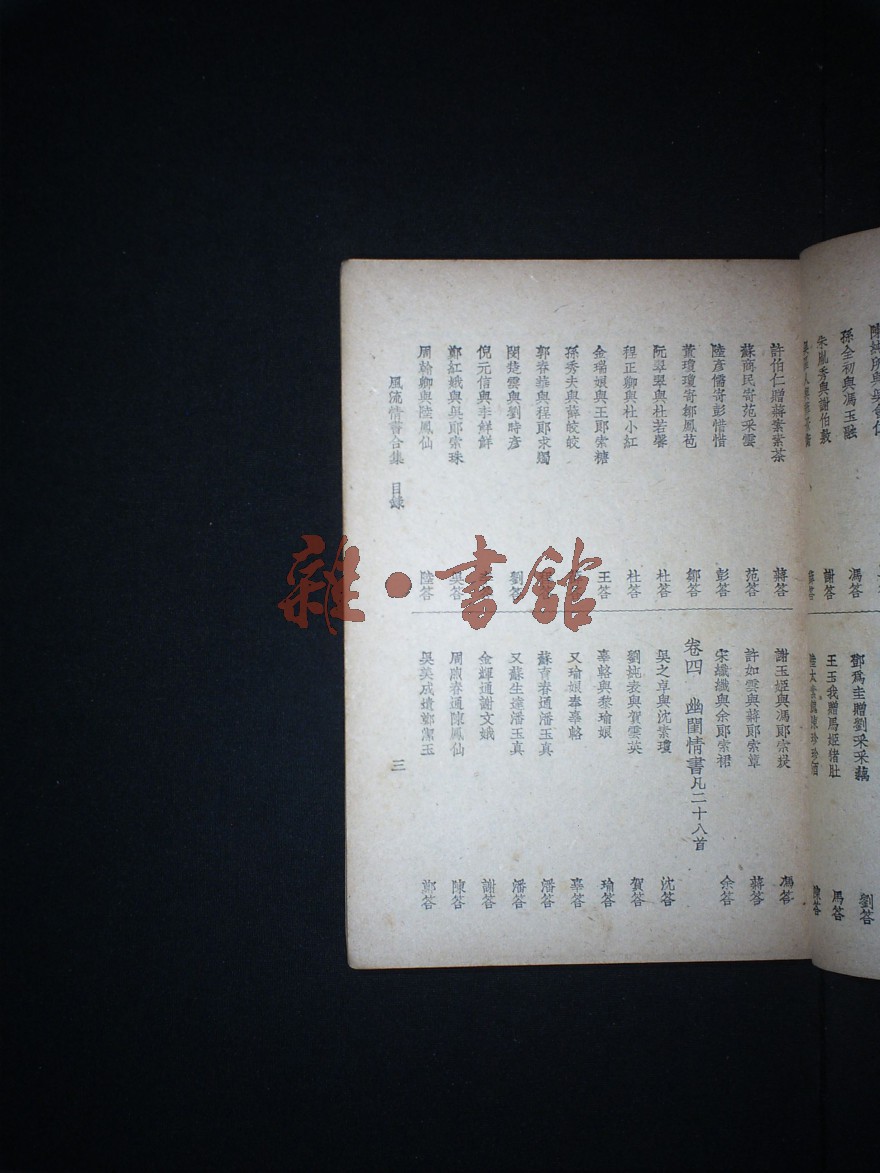 孫全初與馮玉融
馮答
朱胤秀與謝伯敖
謝答
鄧爲圭贈劉采采藕
劉答
王玉我贈馬姬猪肚
馬答
許伯仁贈蔣紫紫茶
蔣答
蘇商民寄范采雲
范答
陸彥儒寄彭惜惜
彭答
董瓊瓊寄鄒鳳苞
鄒答
阮翠翠與杜若馨
杜答
程正卿與杜小紅
杜答
金瑞娘與王郎索糖
王答
孫秀夫與薛皎皎
郭春華與程郎求燭
閔楚雲與劉時彥
劉答
倪元信與李鮮鮮
鄭紅娥與吳郎索珠
吳答
周翰卿與陸鳳仙
陸答
謝玉姬與馮郎索裝
馮答
許如雲與蔣郎索簟
蔣答
宋纖纖與余郎索裙
余答
卷四 幽閨情書凡二十八首
吳之卓與沈素瓊
沈答
劉純袠與賀雲英
賀答
辜輅與黎瑜娘
瑜答
又瑜娘奉辜輅
辜答
蘇育春通潘玉真
潘答
又蘇生達潘玉真
潘答
金輝通謝文娥
謝答
周啟春通陳鳳仙
陳答
吳英成遺鄭潔玉
鄭答
風流情書合集 目錄
三
雜·書館